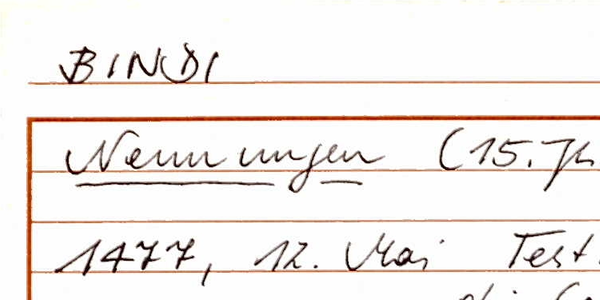 BINDI
Nennungen (15. Jh
1477, 12. Mai Test.